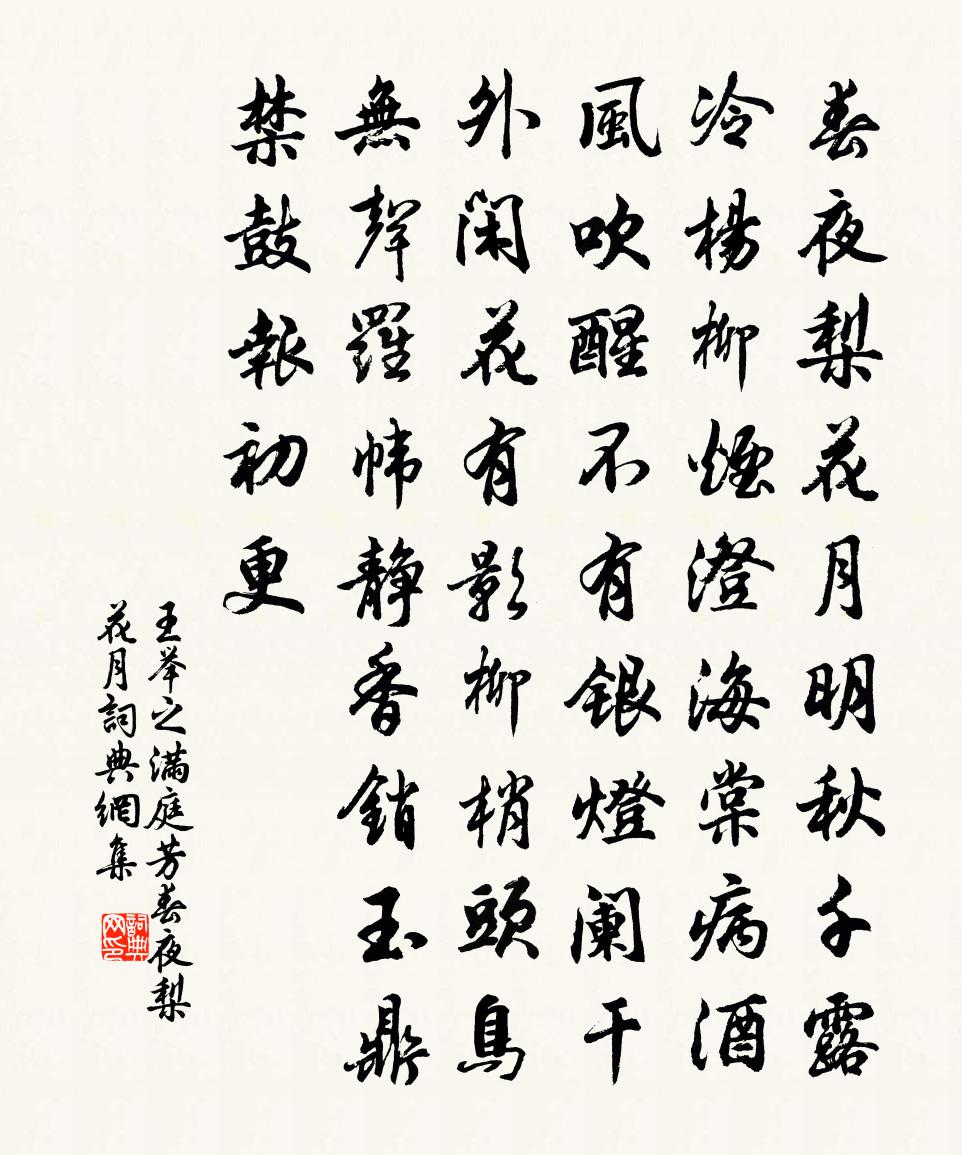 春夜梨花月明秋千露
冷楊柳煙澄海棠病酒
風吹醒不有銀燈闌干
外閑花有影柳梢頭鳥
無聲羅幃靜香銷玉鼎
禁鼓報初更
王举之满庭芳春夜梨
花月詞典網集
詞典网印